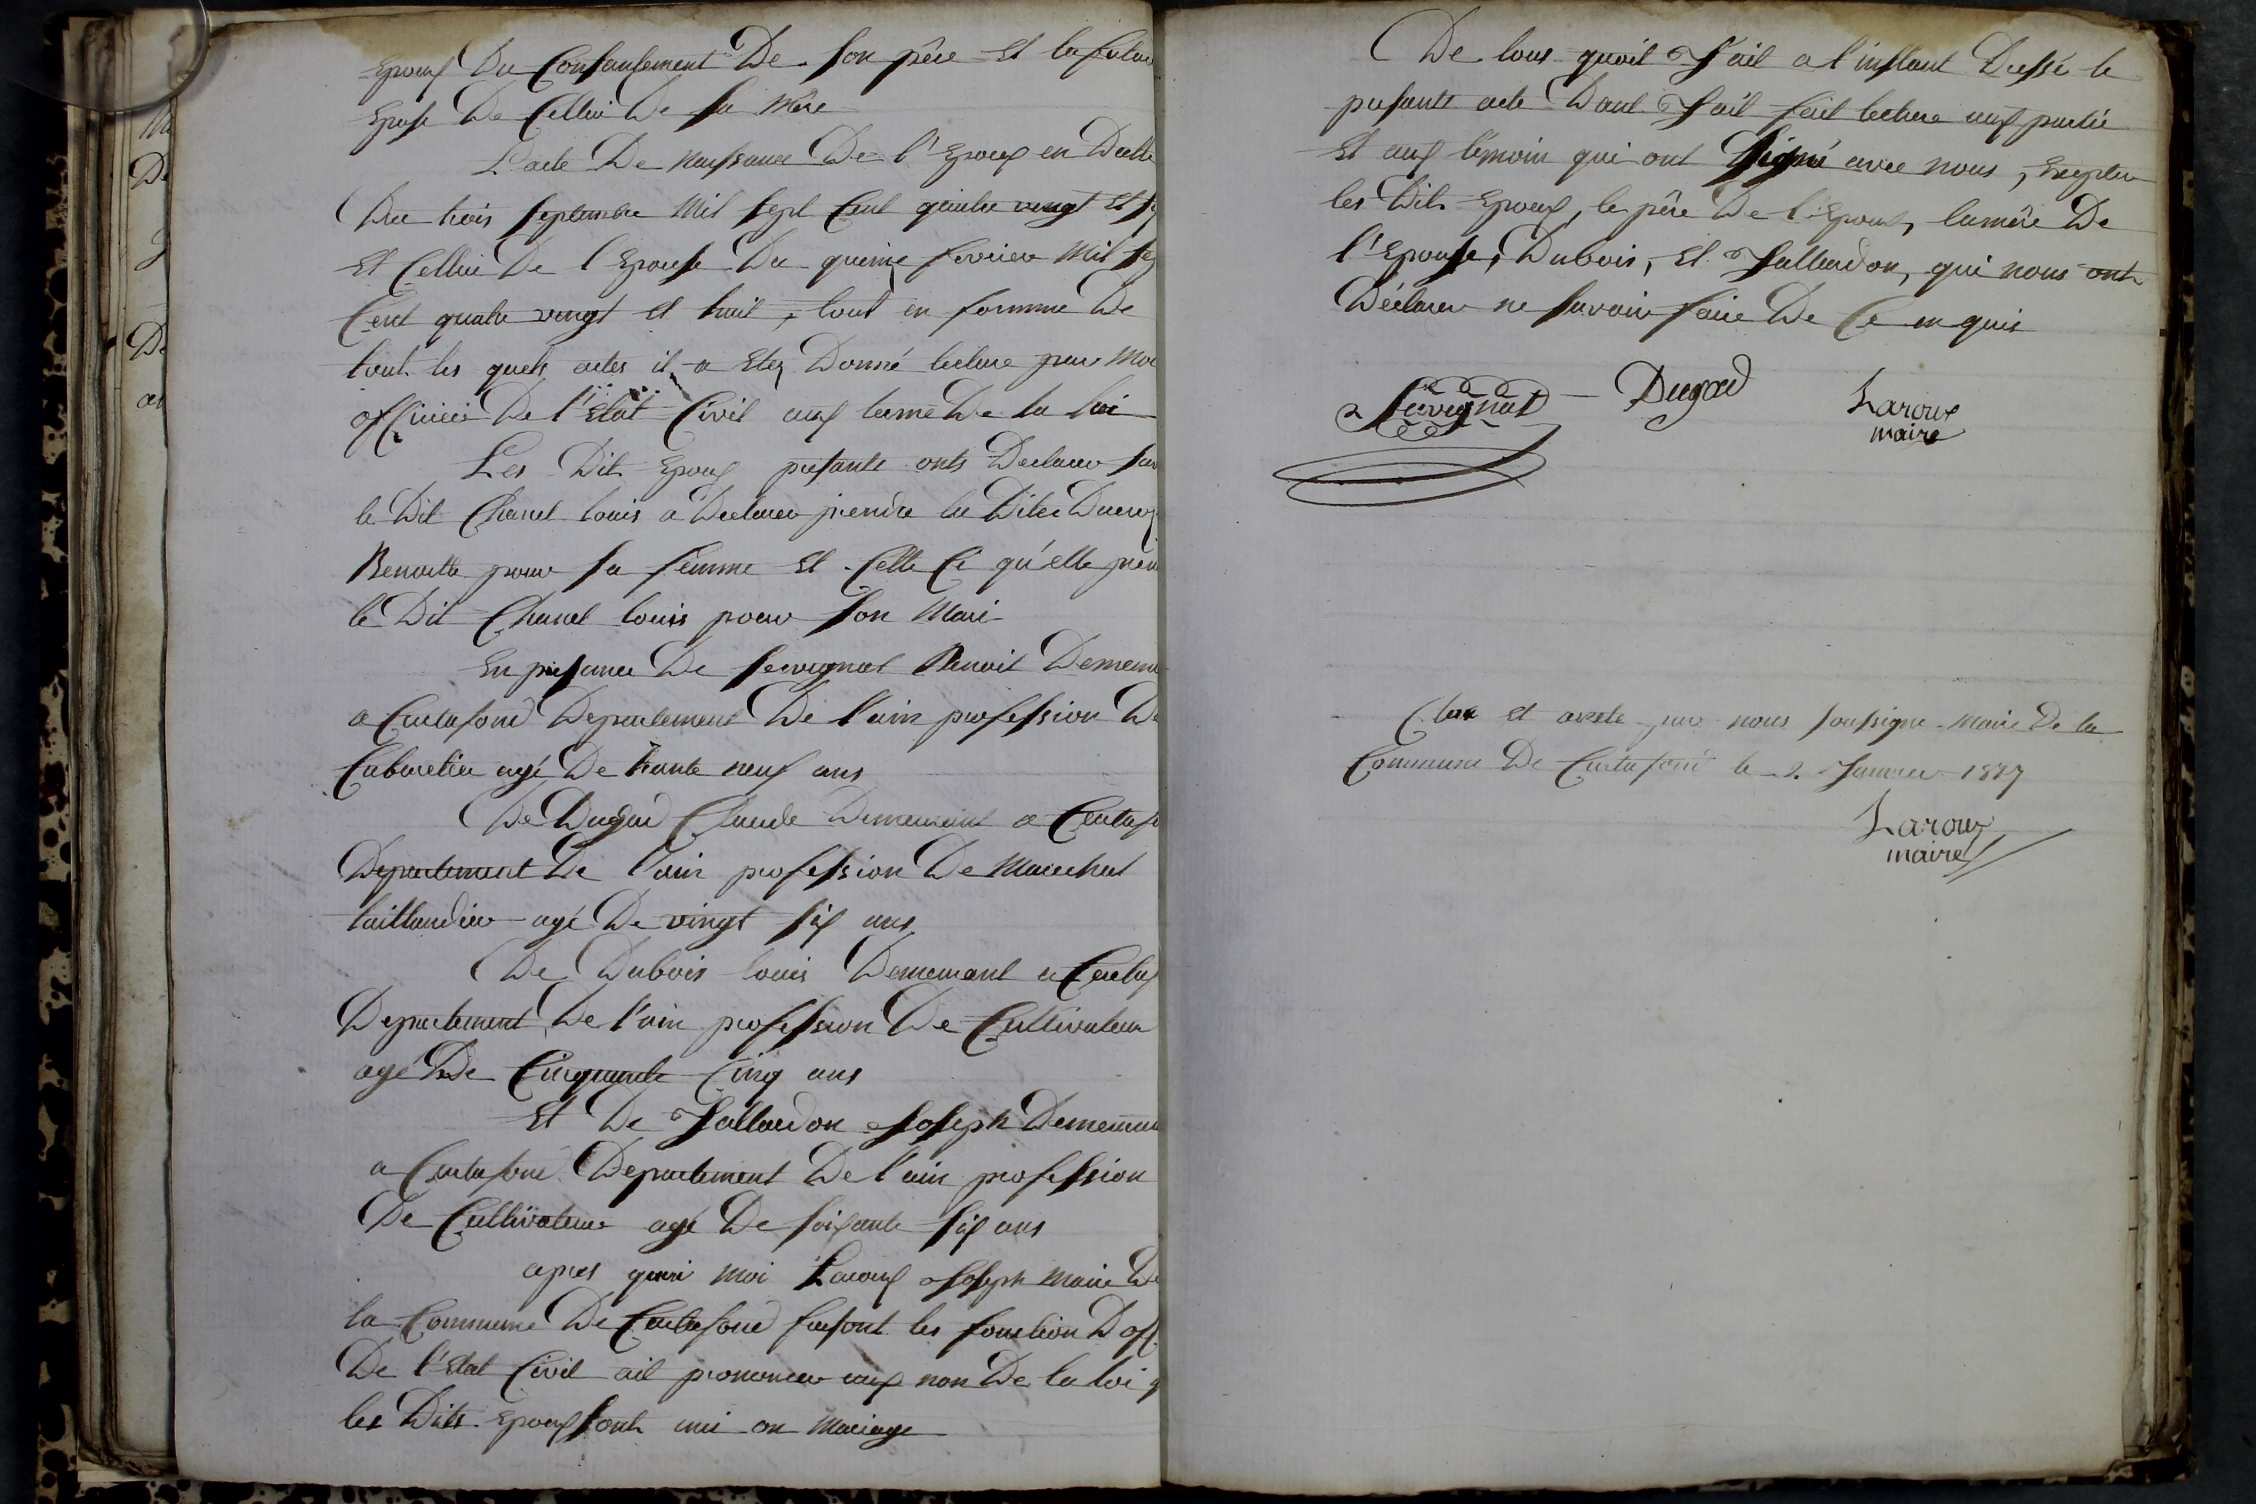 Epoux Du Consantement De son père Et la futur
Epouse De Cellui De sa Mère
L'acte De naissance De l'Epoux en Datte
Du trois septembre Mil sept Cent quatre vingt Et
Et Cellui De l'Epouse Du quinze fevrier Mil
Cent quatre vingt et huit, tout en formme De
tout les quels actes il a Etez Donné lecture par Moi
officier De l'Etat Civil aux terme De la loi
Les Dit Epoux presante onts Declarer
le Dit Chanel louis a Declarer prendre la Ditee
Benoitte pour sa femme Et Celle Ci qu'elle
le Dit Chanel louis pour son Mari
En presance De Servignat Benoit
a Curtafond Departement De l'ain profession De
Cabaretier agé De trante neuf ans
De Dugad Claude Demeurant a
Departement De l'ain profession De Marechal
taillandier agé De vingt six ans
De Dubois louis Demeurant a
Departement De l'ain profession De Cultivateur
agé De Cinquante Cinq ans
Et De Jallardon Joseph
a Curtafond Departement De l'ain profession
De Cultivateur agé De soixante six ans
apres quoi moi Laroux Joseph Maire De
la Commune De Curtafond faisant les fonction D'off
De l'Etat Civil ait prononcer aux non De la loi q
les Dits Epoux sont uni en Mariage
De tous quoit J'ait a l'instant Dressé le
presante acte Dont J'ait fait lecture aux partie
Et aux temoin qui ont signé avec nous, Excepter
les Dit Epoux, le père De l'Epoux, la mère De
l'Epouse, Dubois, Et Jallardon, qui nous ont
Déclarer ne savoir faire De Ce enquis
Servignat Dugad Laroux
maire
Clos et arrete par nous soussigne Maire De la
Commune De Curtafond le 2 Janvier 1827
Laroux
maire